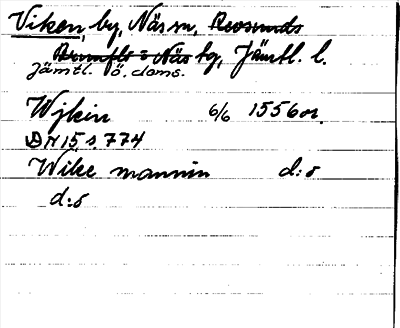 Viken, by, Näs sn, Revsunds
Brunflo o Näs tg, Jämtl. l.
Jämtl. ö. doms.
Wijkin 6/6 1556 or.
DN 15 s 774
Wike mannin d:o
d:o